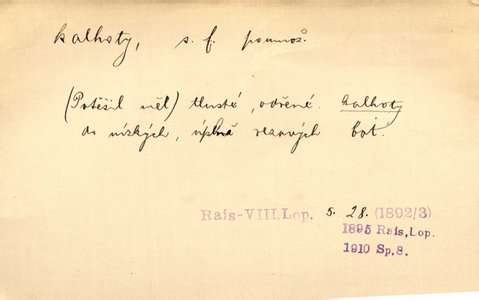 kalhoty, s. f. pomnož.
(Potěšil měl) tlusté, odřené kalhoty
do nízkých, úplně rezavých bot.
Rais-VIII.Lop. s. 28. (1892/3)
1895 Rais,Lop.
1910 Sp.8.